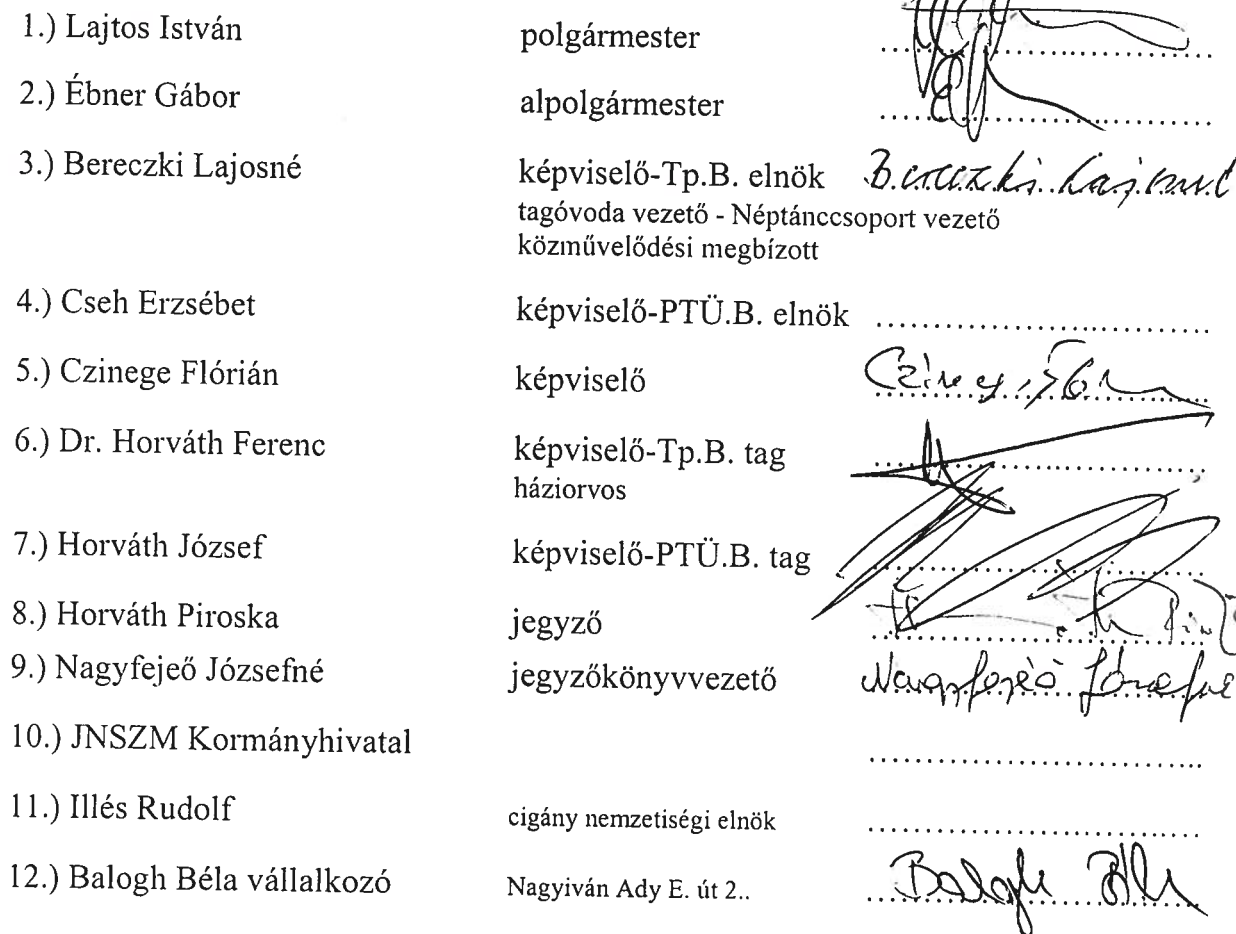 1.) Lajtos István polgármester ..............................
2.) Ébner Gábor alpolgármester ..............................
3.) Bereczki Lajosné képviselő-Tp.B. elnök Bereczki Lajosné
tagóvoda vezető - Néptánccsoport vezető
közművelődési megbízott
4.) Cseh Erzsébet képviselő-PTÜ.B. elnök ..............................
5.) Czinege Flórián képviselő ..............................
6.) Dr. Horváth Ferenc képviselő-Tp.B. tag ..............................
háziorvos
7.) Horváth József képviselő-PTÜ.B. tag ..............................
8.) Horváth Piroska jegyző ..............................
9.) Nagyfejeő Józsefné jegyzőkönyvvezető Nagyfejeő Józsefné
10.) JNSZM Kormányhivatal ..............................
11.) Illés Rudolf cigány nemzetiségi elnök ..............................
12.) Balogh Béla vállalkozó Nagyiván Ady E. út 2.. Balogh Béla